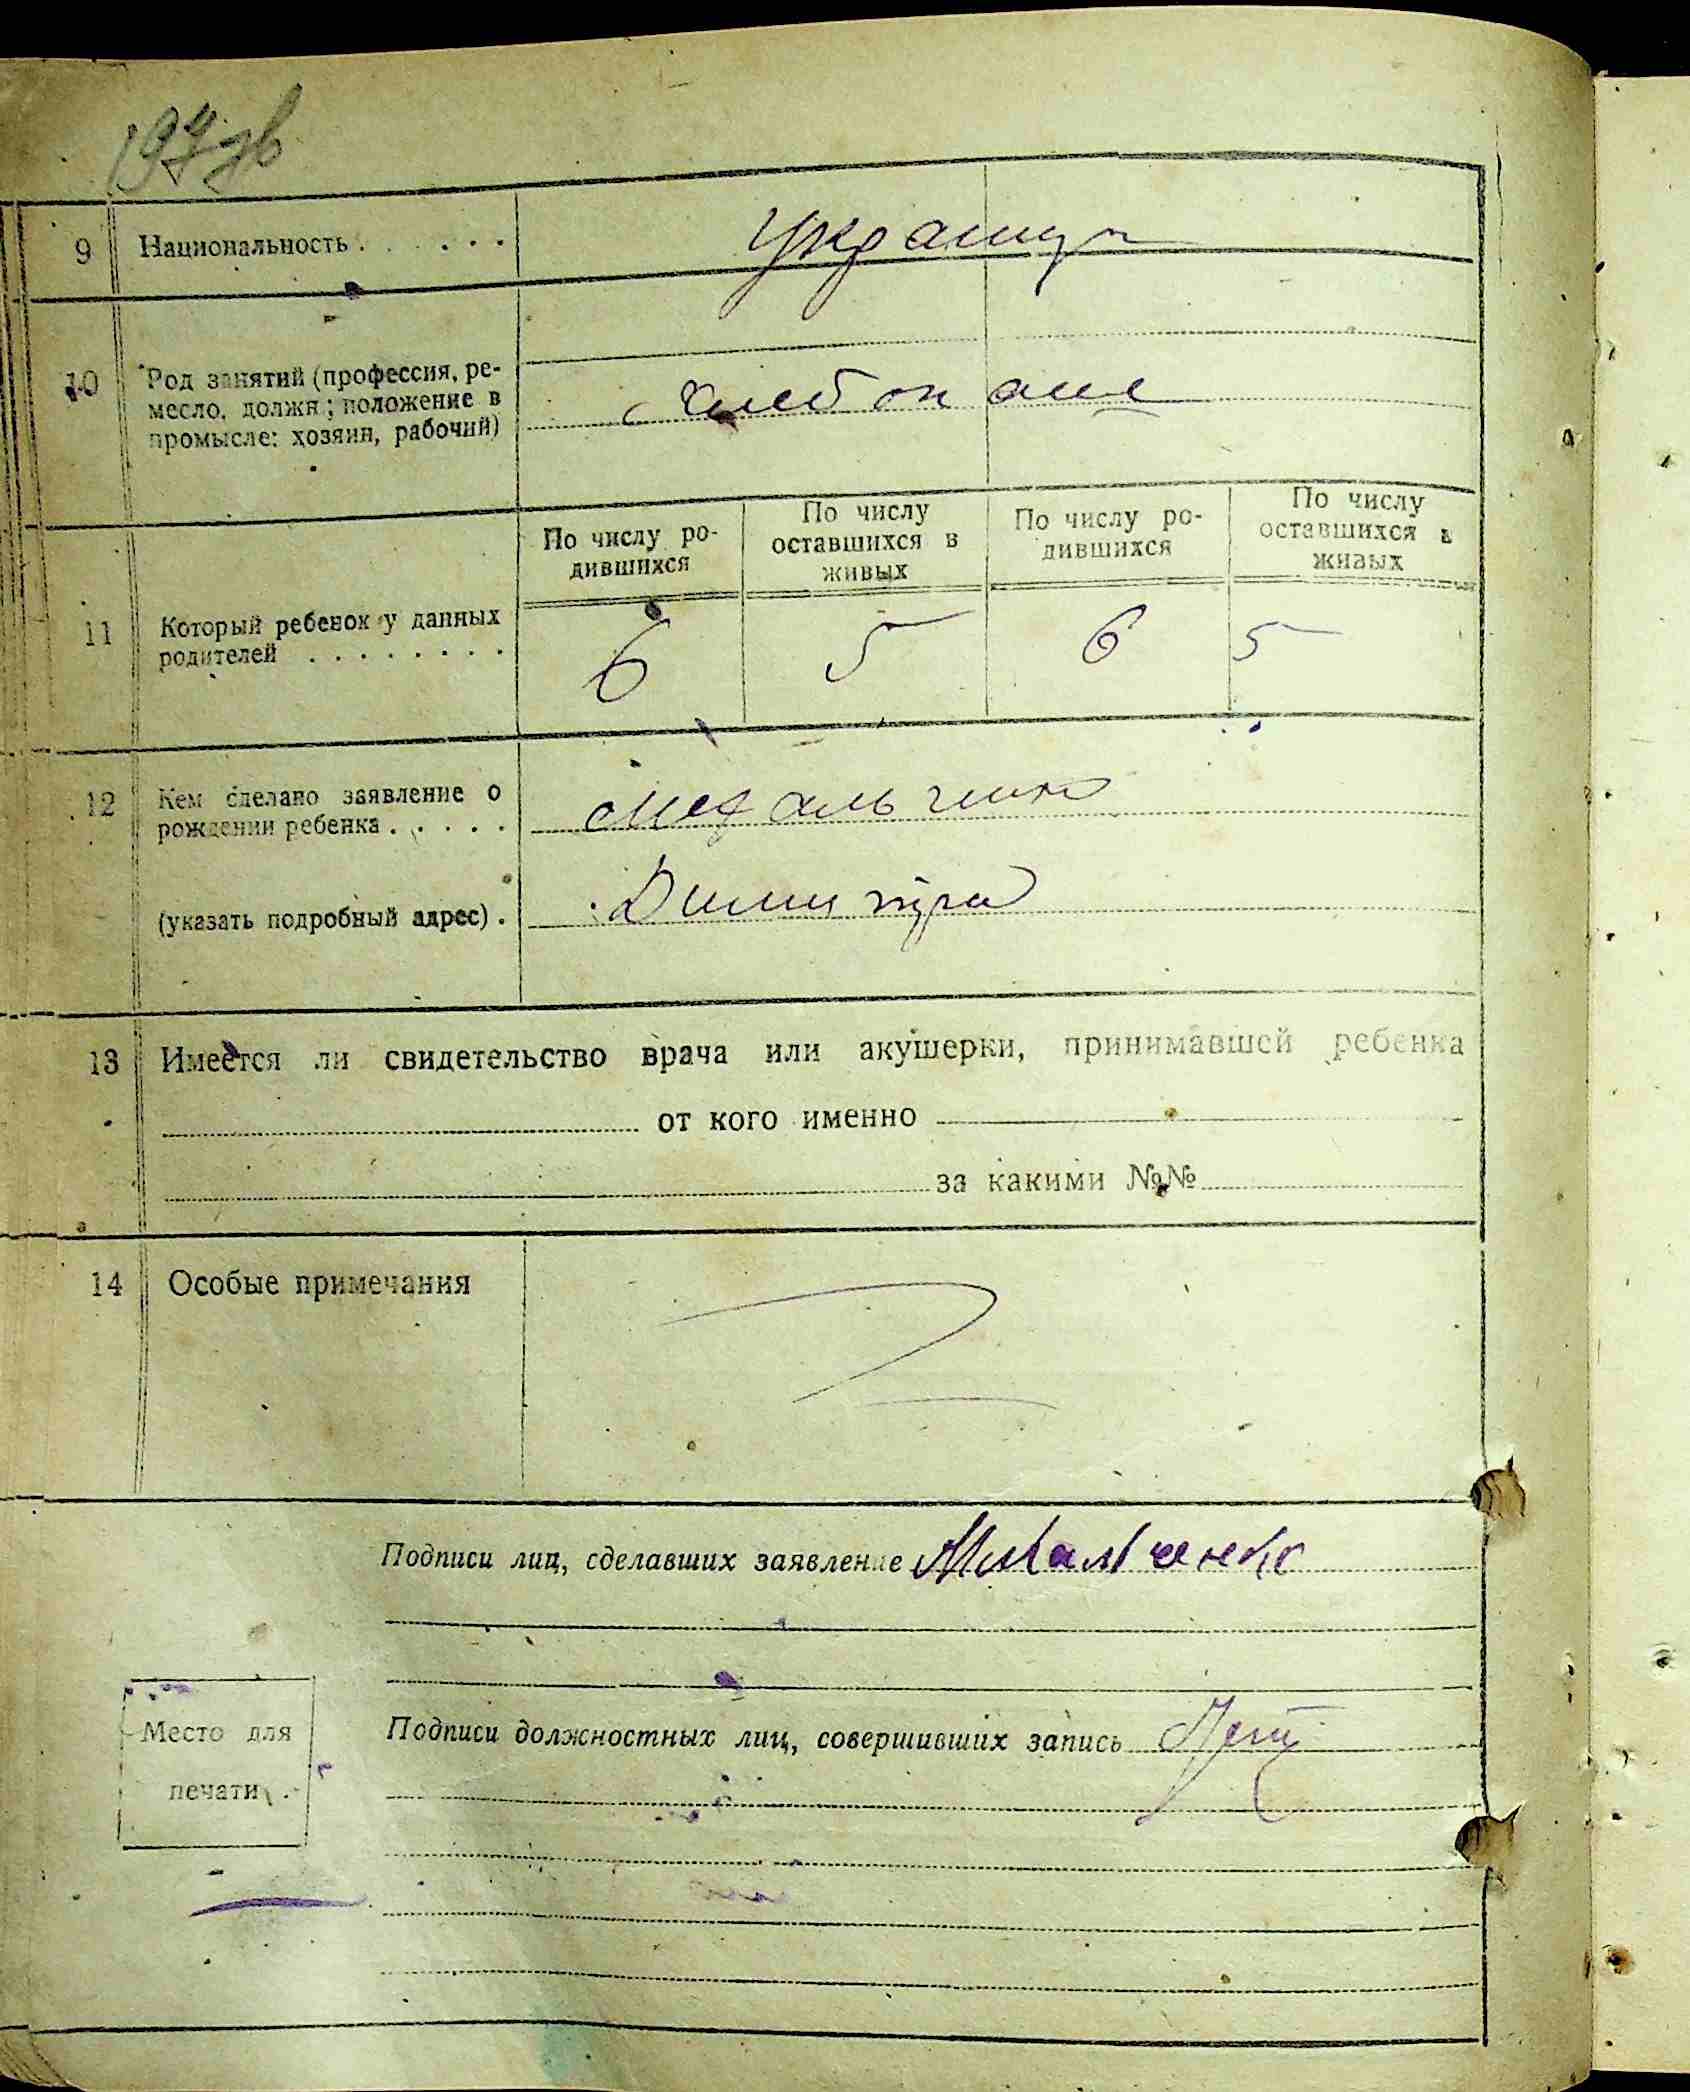 197 зв
9 Национальность . . . . . . Украинцы
10 Род занятий (профессия, ре-
месло, должн.; положение в
промысле: хозяин, рабочий)
хлебопаш
По числу ро-
дившихся
По числу
оставшихся в
живых
По числу ро-
дившихся
По числу
оставшихся в
живых
11 Который ребенок у данных
родителей . . . . . . . .
6 5 6 5
12 Кем сделано заявление о
рождении ребенка . . . . .
Михальченко
(указать подробный адрес) . Димитрий
13 Имеется ли свидетельство врача или акушерки, принимавшей ребенка
от кого именно
за какими №№
14 Особые примечания
Подписи лиц, сделавших заявление Михальченко
Подписи должностных лиц, совершивших запись
Место для
печати